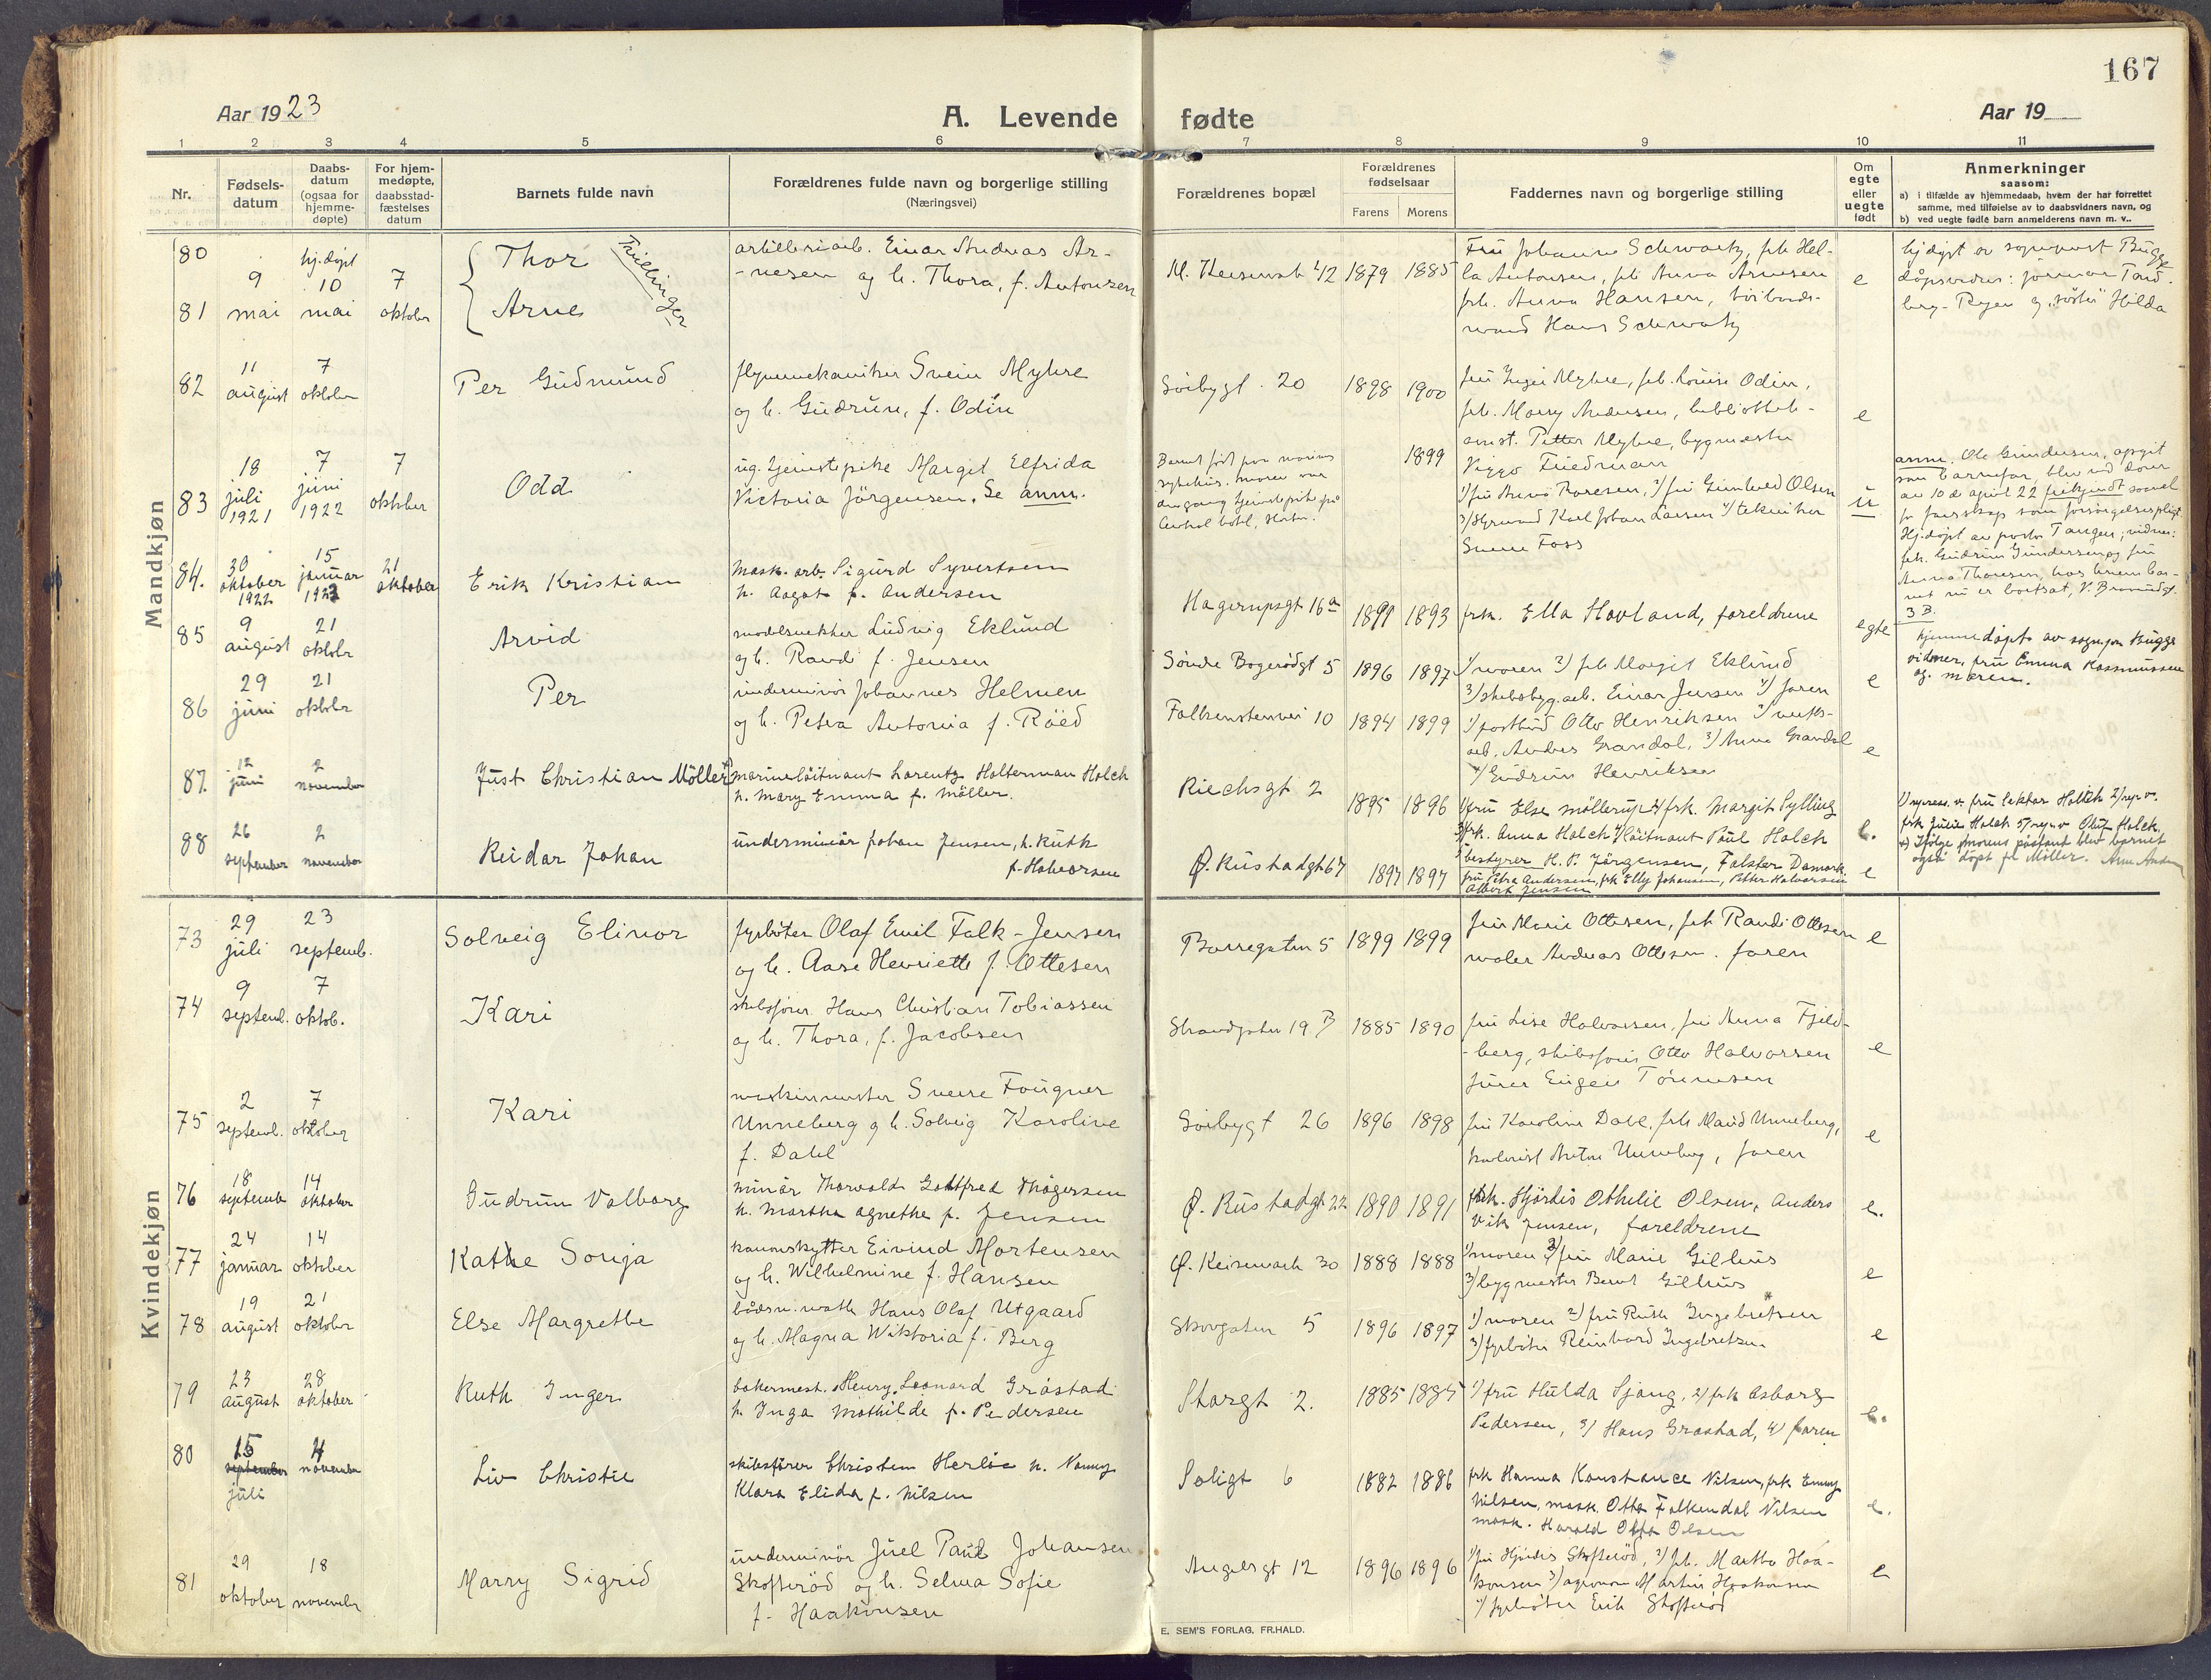 167
Aar 1923
A. Levende fødte
Aar 19
1 2 3 4 5 6 7 8 9 10 11
Nr.
Fødsels-
datum
Daabs-
datum
(ogsaa for
hjemme-
døpte)
For hjem-
medøpte,
daabsstad-
fæstelses
datum
Barnets fulde navn
Forældrenes fulde navn og borgerlige stilling
(Næringsvei)
Forældrenes bopæl
Forældrenes
fødselsaar
Farens Morens
Faddernes navn og borgerlige stilling
Om
egte
eller
uegte
født
Anmerkninger
saasom:
a) i tilfælde av hjemmedaab, hvem der har forrettet
samme, med tilføielse av to daabsvidners navn, og
b) ved uegte fødte barn anmelderens navn m. v..
Mandkjøn
80
81
9
mai
hj.døpt
10
mai
7
oktober
Thor
Arne
Tvillinger
artilleriarb. Einar Andreas Ar-
-nesen og h. Thora, f. Antonsen
1879 1885
Fru Johanne Schwartz, frk Hel-
la Antonsen, frk Anna Arnesen
frk. Anna Hansen,
mand Hans Schwartz
e
hjdøpt av sogneprest Bugge
82
11
august
7
oktober
Per Gudmund
flymekaniker Svein Myhre
og h. Gudrun, f. Odin
Søebygt. 20
1898 1900
fru Inger Myhre, frk. Louise Odin,
frk. Mary Andersen, bibliothek-
assist. Petter Myhre, bygmester
Viggo Friedman
e
83
18
juli
1921
7
juni
1922
7
oktober
Odd
ug. tjenestepike Margit Elfrida
Victoria Jörgensen. Se anm.
1899
1/ fru Anna Thoresen, 2/ fru Gunhild Olsen
3/ styrmand Karl Johan Larsen 4/ tekniker
Svenn Foss
u
anm. Ole Gundersen, opgit
som barnefar, blev ved dom
av 10de april 22 frikjendt saavel
for farsskap som forsørgelsespligt.
Hj.døpt av pastor Tangen; vidner:
frk. Gudrun Gundersen og fru
Anna Thoresen, hos hvem bar-
net nu er bortsat,
3 B.
84.
30
oktober
1922
15
januar
1923
21
oktober
Erik Kristian
Mask. arb. Sigurd Syvertsen
h. Aagot f. Andersen
Hagerupsgt 16a
1891 1893
frk. Ella Hovland, foreldrene
egte
hjemmedøpt av sogn.pr. Bugge
vidner, fru Emma Rasmussen
og moren.
85
9
august
21
oktober
Arvid
modelsnekker Ludvig Eklund
og h. Randi f. Jensen
Søndre Bogerødgt 5
1896 1897
1/ moren 2/ frk Margit Eklund
3/ skibsbyg.arb. Einar Jensen 4/ faren
e
86
29
juni
21
oktober
Per
underminør Johannes Helmen
og h. Petra Antonia f. Röed
Falkenstenvei 10
1894 1899
1/ postbud Otto Henriksen 2/ verfts-
arb. Anders Grandal, 3/ Anna Grandal
4/ Gudrun Henriksen
e
87.
12
juni
2
november
Just Christian Möller
marinelöitnant Lorentz Holterman Holck
h. Mary Emma f. Möller.
Riechsgt 2
1895 1896
1/ fru Else Möllerup 2/ frk. Margit Sylling
3/ frk. Anna Holck 4/ löitnant Paul Holck
5 bestyrer H. P. Jörgensen, Falster Danmark.
e.
1/ repres. v. fru lektor Holtek 2/ rep v.
frk Julie Holck 5/ rep v Oluf Holck
x) Ifölge morens paastand blev barnet
også döpt f. Möller.
88
26
september
2
november
Reidar Johan
underminör Johan Jensen, h. Ruth
f. Halvorsen
Ø. Rustadgt 67
1897 1897
fru Petra Andersen, frk Elly Johansen, Petter Halvorsen
Albert Jensen
e
Kvindekjøn
73
29
juli
23
septemb.
Solveig Elinor
fyrböter Olaf Emil Falk-Jensen
og h. Aase Henriette f. Ottesen
Borregaten 5
1899 1899
fru Marie Ottesen, frk Randi Ottesen
maler Andreas Ottesen. faren
e
74
9
septemb.
7
oktob.
Kari
skibsfører Hans Christian Tobiassen
og h. Thora, f. Jacobsen
Strandgaten 19 B
1885 1890
fru Lise Halvorsen, fru Anna Fjeld-
-berg, skibsfører Otto Halvorsen
fører Eugen Tönnesen
e
75
2
septemb.
7
oktober
Kari
maskinmester Sverre Fougner
Unneberg og h. Solveig Karoline
f. Dahl
Søebygt 26
1896 1898
fru Karoline Dahl, frk Maud Unneberg,
Anton Unneberg, faren
e
76
18
septemb
14
oktober
Gudrun Valborg
minör Thorvald Gottfred Thögersen
h. Martha Agnethe f. Jensen
Ø. Rustadgt 22
1890 1891
frk. Hjördis Othelie Olsen, Anders
Vik Jensen, foreldrene
e.
77
24
januar
14
oktober
Kathe Sonja
kanonskytter Eivind Mortensen
og h. Wilhelmine f. Hansen
Ø. Keisemark 30
1888 1888
1/ moren 2/ fru Marie Gilhus
3/ bygmester Bernt Gilhus
e
78
19
august
21
oktober
Else Margrethe
båtsm.math Hans Olaf Utgaard
og h. Magna Wiktoria f. Berg
Skovgaten 5
1896 1897
1/ moren 2/ fru Ruth Ingebretsen
3/ fyrböter Reinhard Ingebretsen
e
79
23
august
28
oktober
Ruth Inger
bakermest. Henry Leonard Gråstad
h. Inga Mathilde f. Pedersen
Storgt 2.
1885 1885
1/ fru Hulda Sjong, 2/ frk Asborg
Pedersen, 3/ Hans Grastad, 4/ faren
e.
80
15
september
juli
4
november
Liv Christie
skibsfører Christen Herlöe h. Nanny
Klara Elida f. Nilsen
Soligt 6
1882 1886
frk Hanna Konstance Nilsen, frk Emmy
Nilsen, mask. Otto Falkendal Nilsen
mask. Harald Otto Olsen
e.
81
29
oktober
18
november
Marry Sigrid
underminör Juel Paul Johansen
Skofteröd og h. Selma Sofie
f. Haakonsen
Angelsgt 12
1896 1896
1/ fru Hjördis Skofteröd, 2/ frk. Martha Haa-
konsen 3/ agronom Martin Haakonsen
4/ fyrböter Erik Skofteröd
e
E. SEM'S FORLAG, FR.HALD.